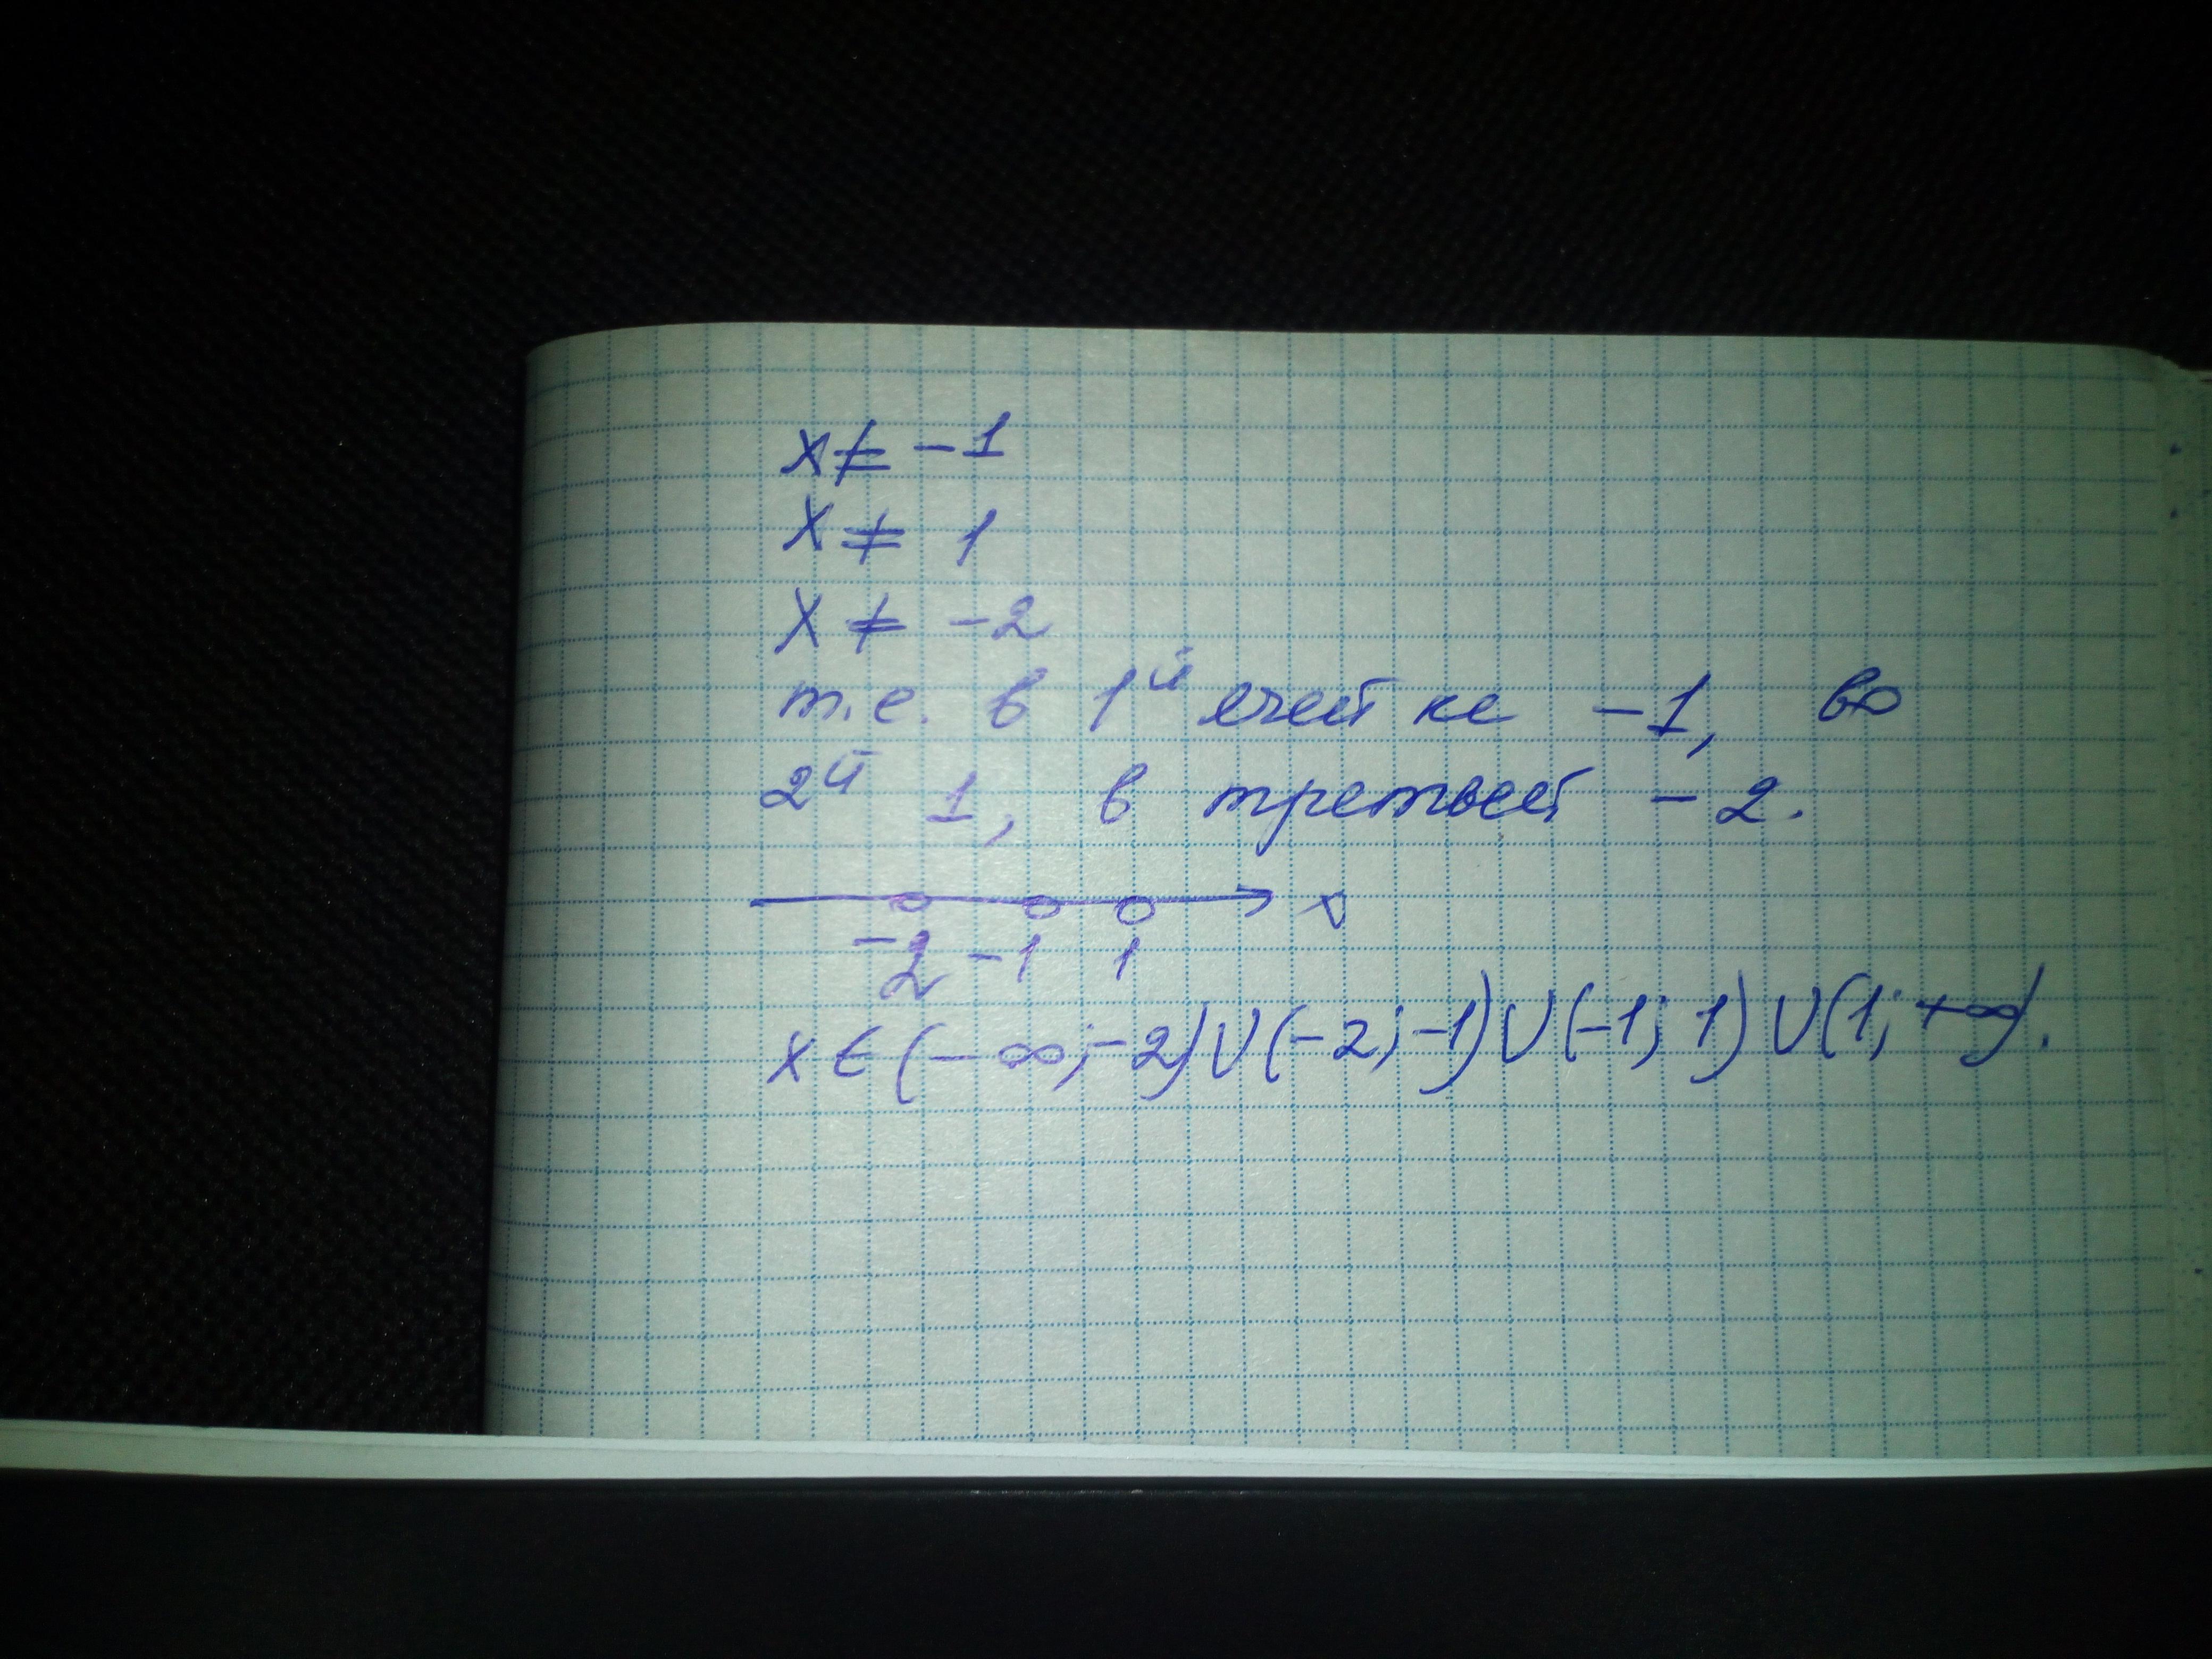 x ≠ -1
x ≠ 1
x ≠ -2
т.е. в 1й ячейке -1, во
2й 1, в третьей -2.
x
-2 -1 1
x ∈ (-∞; -2) ∪ (-2; -1) ∪ (-1; 1) ∪ (1; +∞).